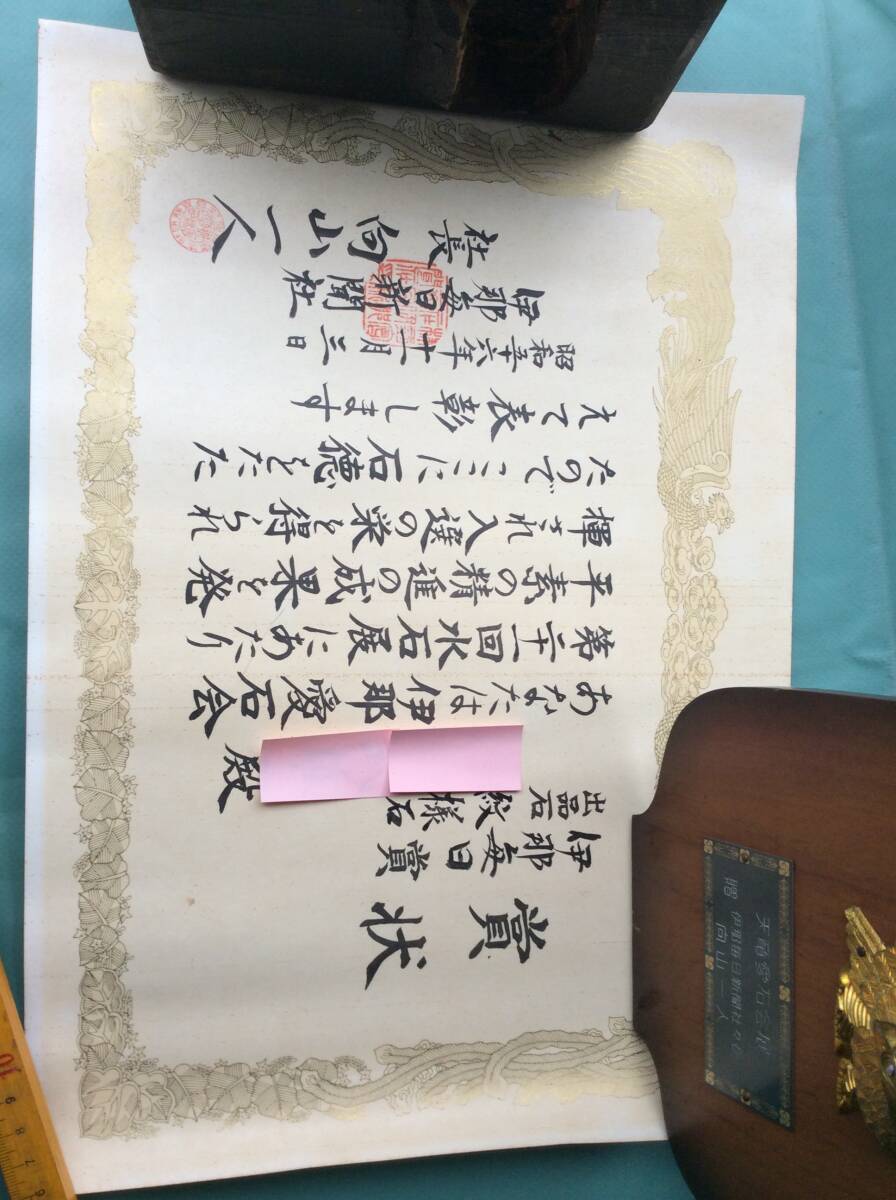 賞状
伊那毎日賞
出品石
紋様石
殿
あなたは伊那愛石会
第二十一回水石展にあたり
平素の精進の成果を発
揮され入選の栄を得られ
たのでここに石徳をたた
えて表彰します
昭和五十六年十一月三日
伊那毎日新聞社
社長 向山一人
天竜愛石会展
贈 伊那毎日新聞社
向山一人
10
9
8
7
6